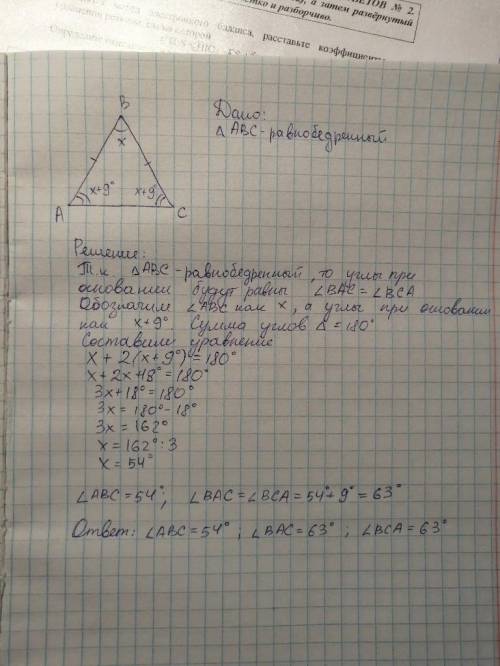 ЕТОВ № 2.
а затем развёрнутый
и разборчиво.
баланса, расставьте
B
x
x+9°
x+9°
A
C
Дано:
△ABC-равнобедренный
Решение:
Т.к △ABC-равнобедренный, то углы при
основании будут равны ∠BAC=∠BCA
Обозначим ∠ABC как x, а углы при основании
как x+9°. Сумма углов △=180°
Составим уравнение
x + 2(x+9°)=180°
x+2x+18°=180°
3x+18°=180°
3x=180°-18°
3x=162°
x=162°:3
x=54°
∠ABC=54°; ∠BAC=∠BCA=54°+9°=63°
Ответ: ∠ABC=54°; ∠BAC=63°; ∠BCA=63°